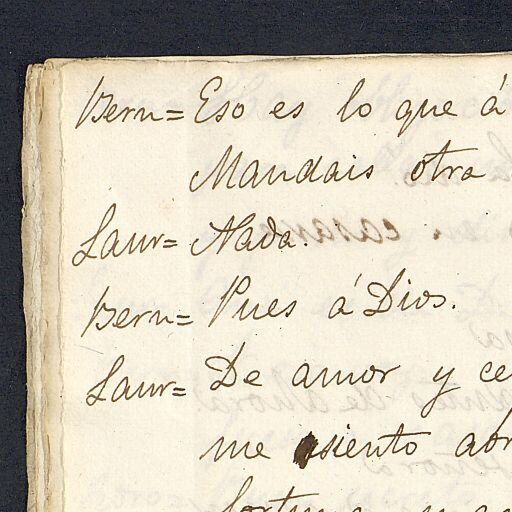 Bern= Eso es lo que á
Mandais otra
Laur= Nada.
Bern= Pues á Dios.
Laur= De amor y ce
me siento abr